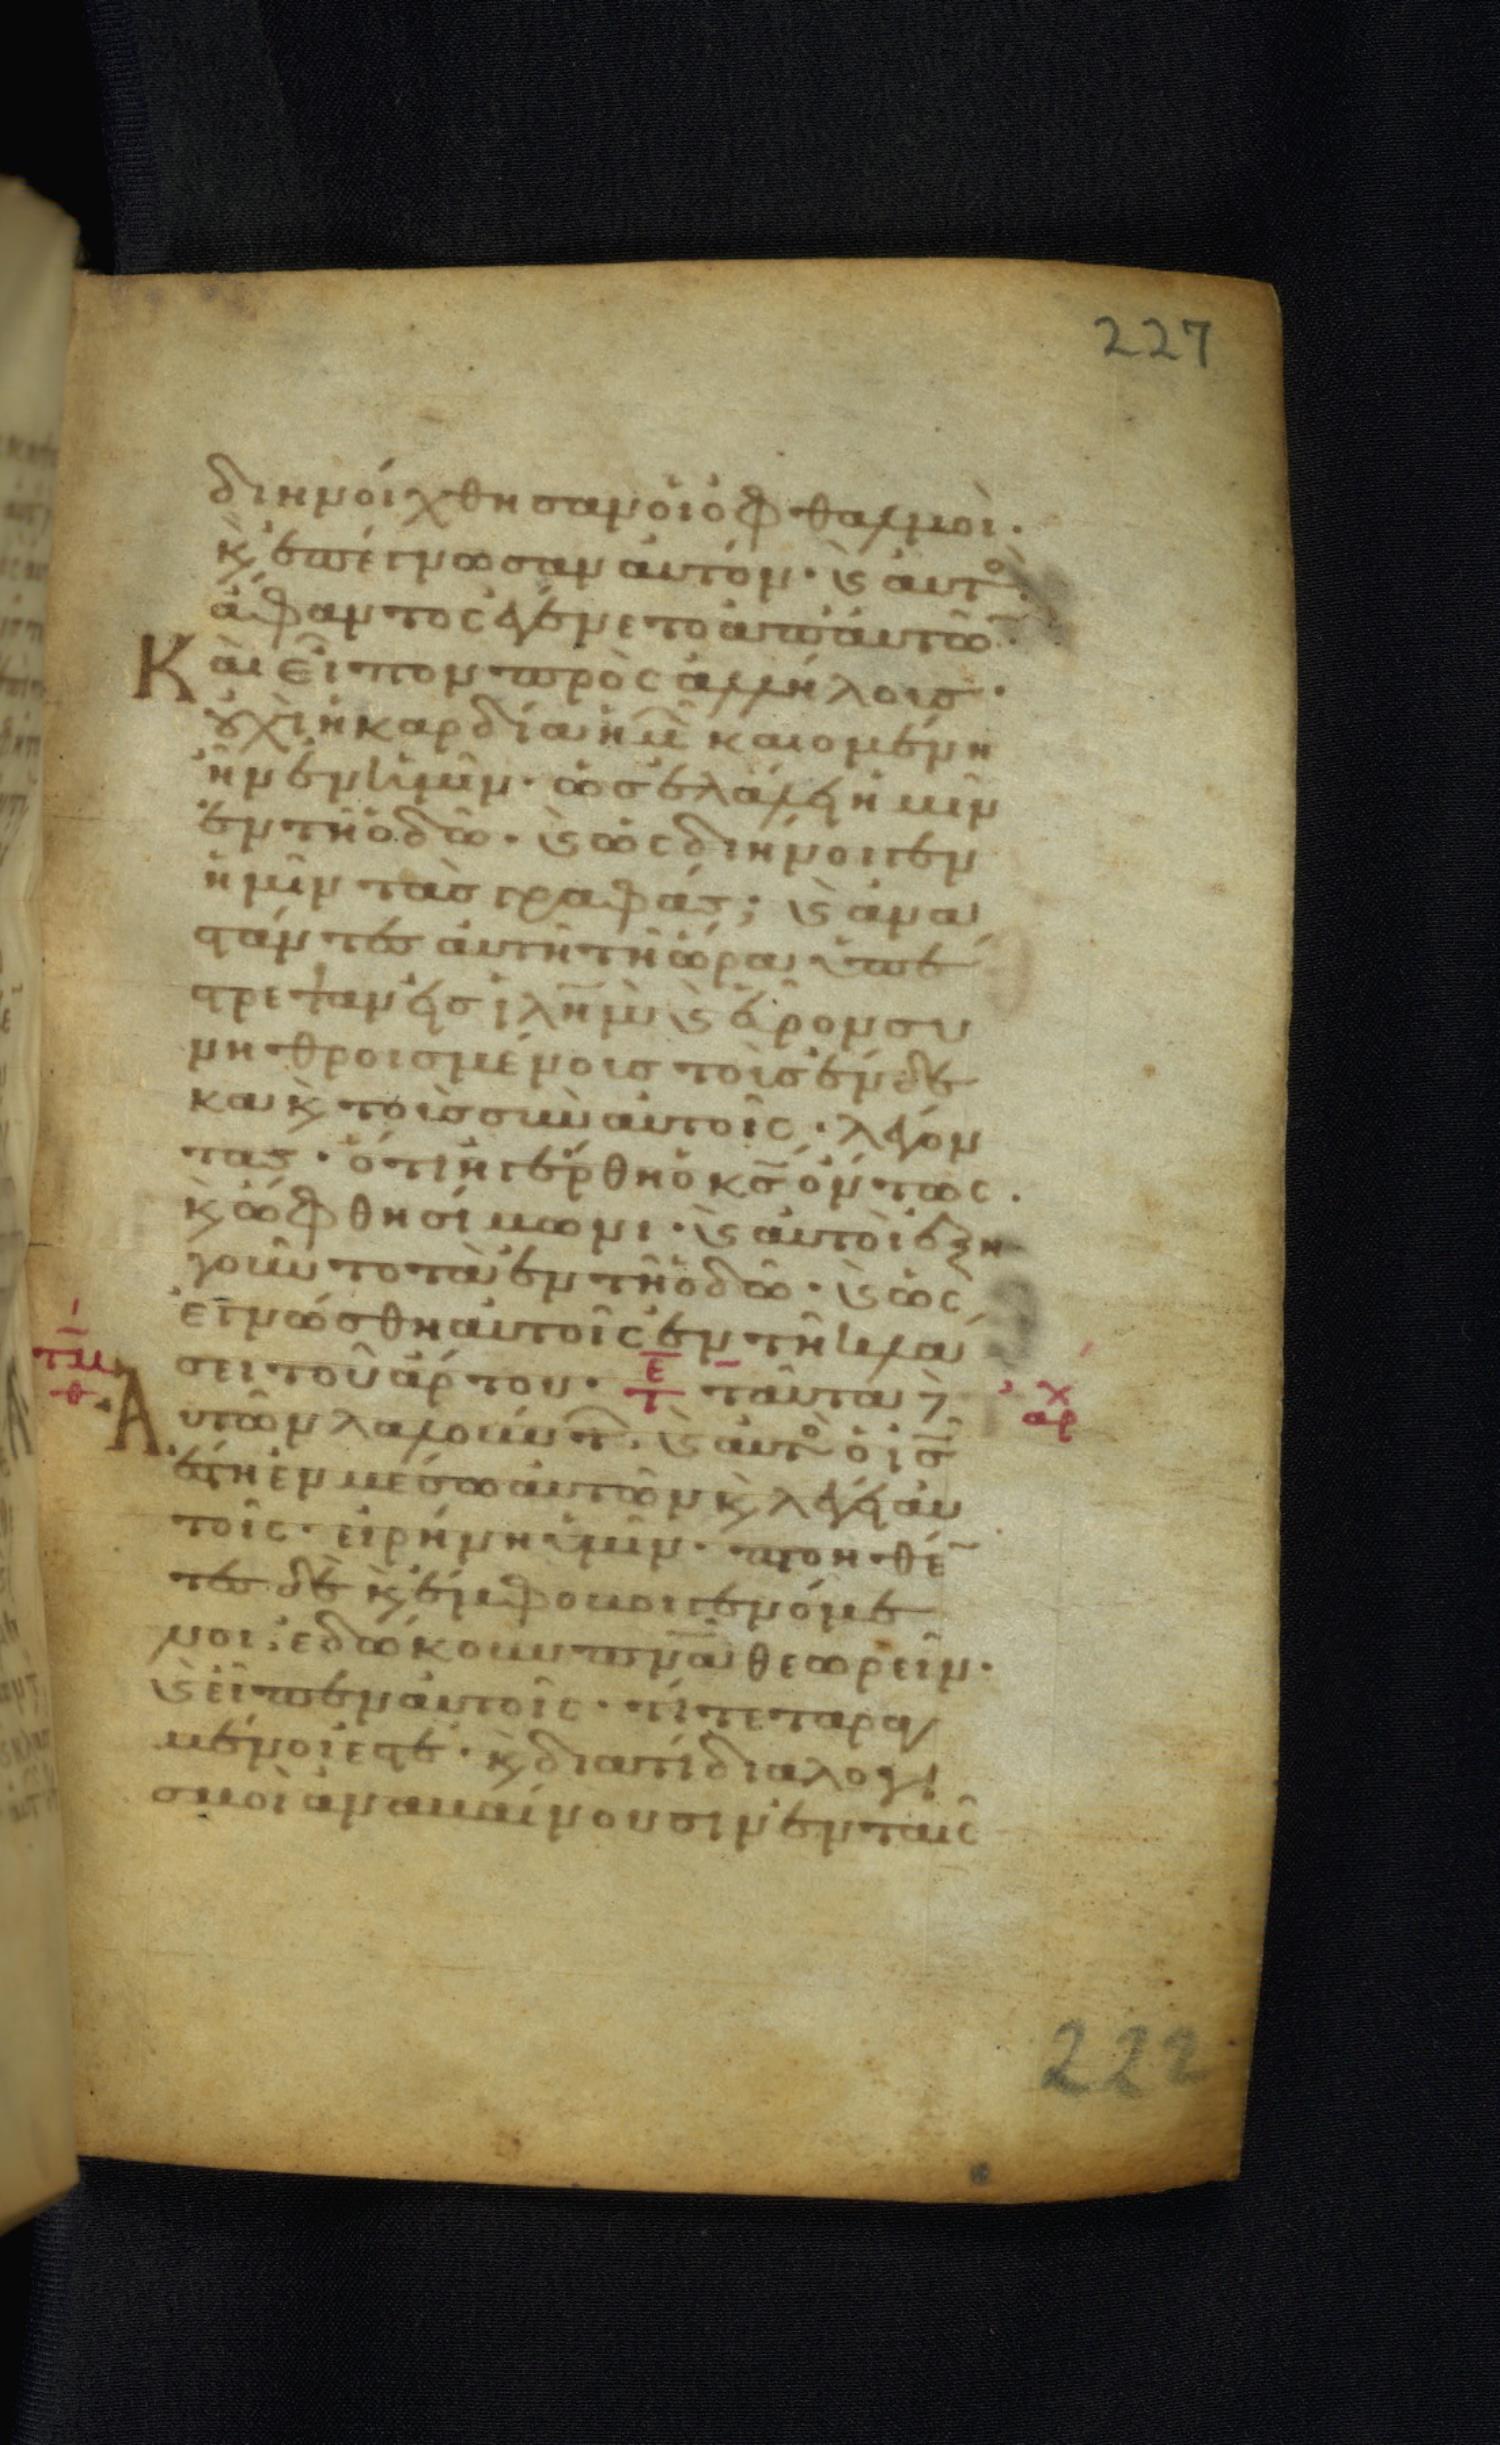 227
διηνοίχθησαν οἱ ὀφθαλμοὶ·
κ̀ ἐπέγνωσαν αὐτόν· κ̀ αὐτὸς
ἄφαντος ἐγένετο ἀπ' αὐτῶ̄·
Και εἶπον πρὸς ἀλλήλους·
οὐχὶ ἡ καρδία ἡμῶ̄ καιομένη
ἦν ἐν ἡμῖν· ὡς ἐλάλει ἡμῖν
ἐν τῆ ὁδῶ· κ̀ ὡς διήνοιγεν
ἡμῖν τὰς γραφάς; κ̀ ἀνα
στάντες αὐτῆ τῆ ὥρα ὑπέ
στρεψαν εἰς ἰλη̄μ κ̀ εὗρον συ
νηθροισμένους τοὺς ἕνδε
κα κ̀ τοὺς σὺν αὐτοῖς· λέγον
τας· ὅτι ἠγέρθη ὁ κ̄ς ὄντως·
κ̀ ὤφθη σίμωνι· κ̀ αὐτοὶ ἐξη
γοῦντο τὰ ἐν τῆ ὁδῶ· κ̀ ὡς
ἐγνώσθη αὐτοῖς ἐν τῆ κλά
σει τοῦ ἄρτου· ταῦτα δὲ
Αὐτῶν λαλούντ̄· κ̀ αὐτὸς ὁ ῑς
ἔστη ἐν μέσω αὐτῶν κ̀ λέγει αὐ
τοῖς· εἰρήνη ὑμῖν· πτοηθέ̄
τες δὲ κ̀ ἔμφοβοι γενόμε
νοι· ἐδόκουν π̄να θεωρεῖν·
κ̀ εἶπεν αὐτοῖς· τί τεταρα
μένοι ἐστέ· κ̀ διατί διαλογι
σμοὶ ἀναβαίνουσιν ἐν ταῖς
222